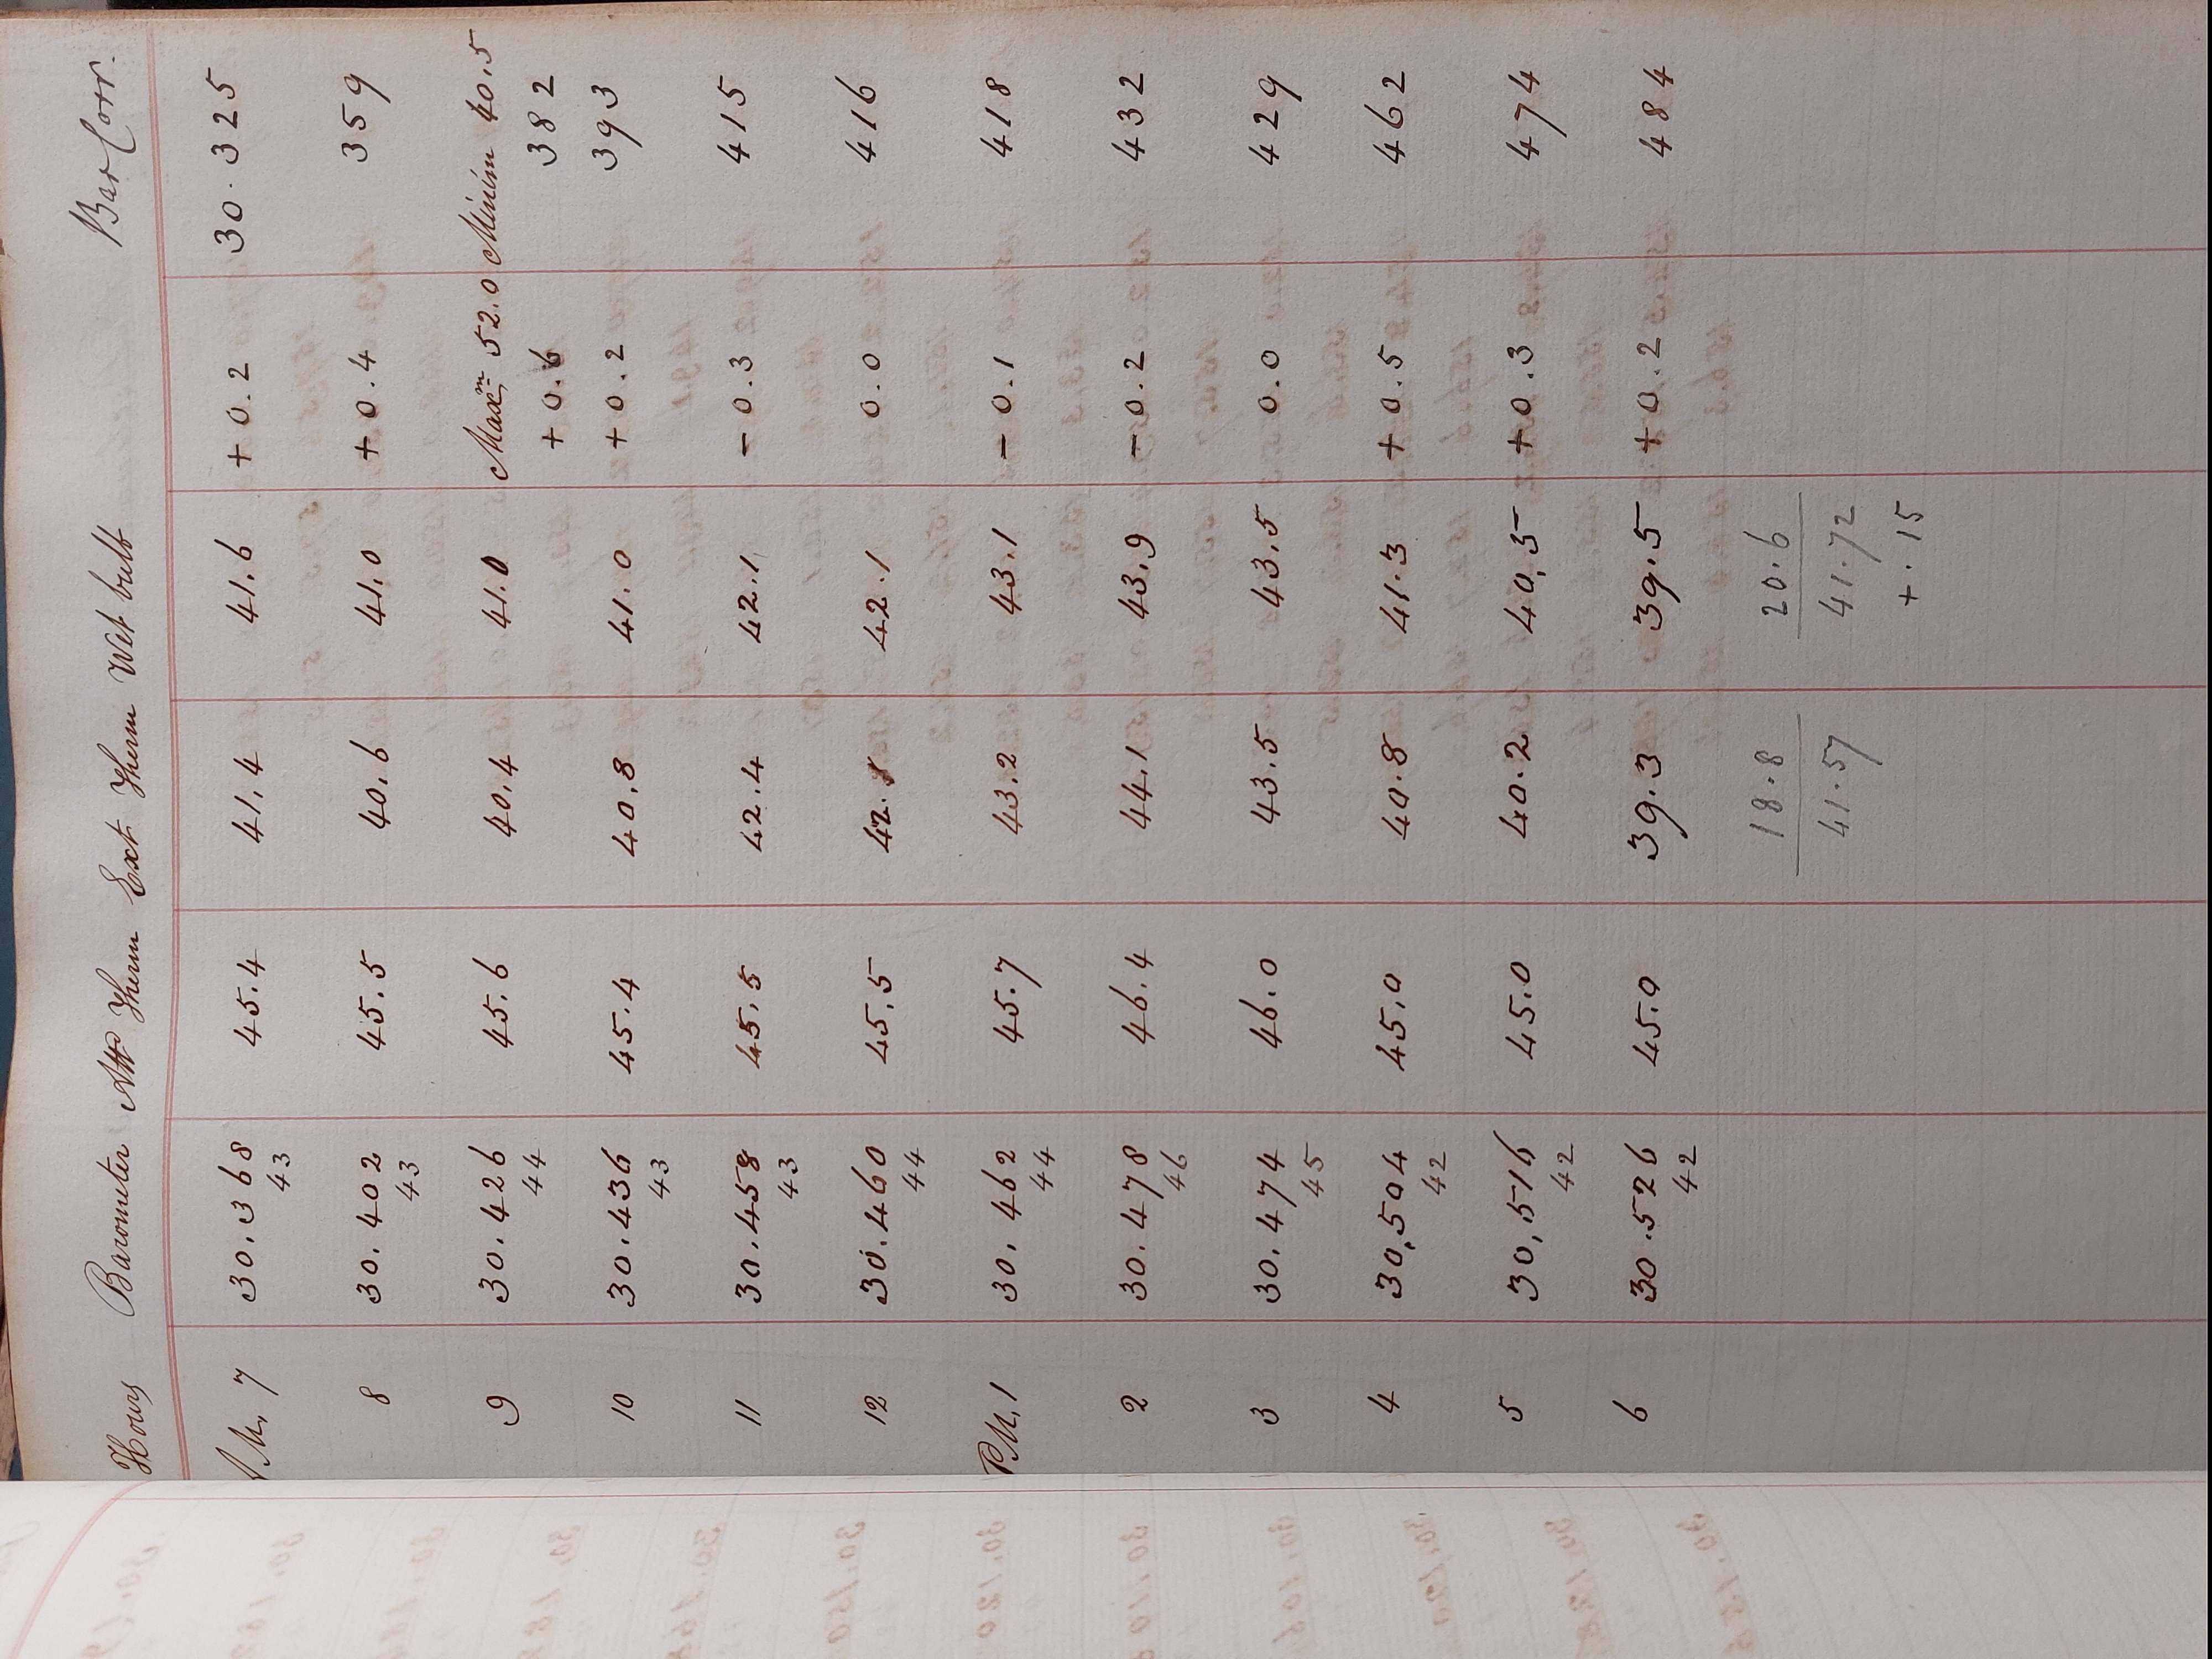 Hours Barometer Att^d Therm Ext Therm Wet bulb Bar Corr.
AM, 7 30.368 45.4 41.4 41.6 + 0.2 30.325
43
8 30.402 45.5 40.6 41.0 + 0.4 359
43
9 30.426 45.6 40.4 41.0 Max^m 52.0 Minim 40.5
44 + 0.6 382
10 30.436 45.4 40.8 41.0 + 0.2 393
43
11 30.458 45.5 42.4 42.1 - 0.3 415
43
12 30.460 45.5 42.1 42.1 0.0 416
44
PM, 1 30.462 45.7 43.2 43.1 - 0.1 418
44
2 30.478 46.4 44.1 43.9 - 0.2 432
46
3 30.474 46.0 43.5 43.5 0.0 429
45
4 30,504 45.0 40.8 41.3 + 0.5 462
42
5 30,516 45.0 40.2 40,5 + 0.3 474
42
6 30.526 45.0 39.3 39.5 + 0.2 484
42
18.8 20.6
41.57 41.72
+ .15